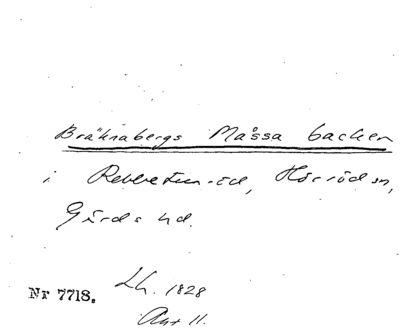 Bräknabergs Måssa backen
i Rebbetuaröd, Hörröd sn,
Gärds hd.
Nr 7718. Lh. 1828
Akt 11.